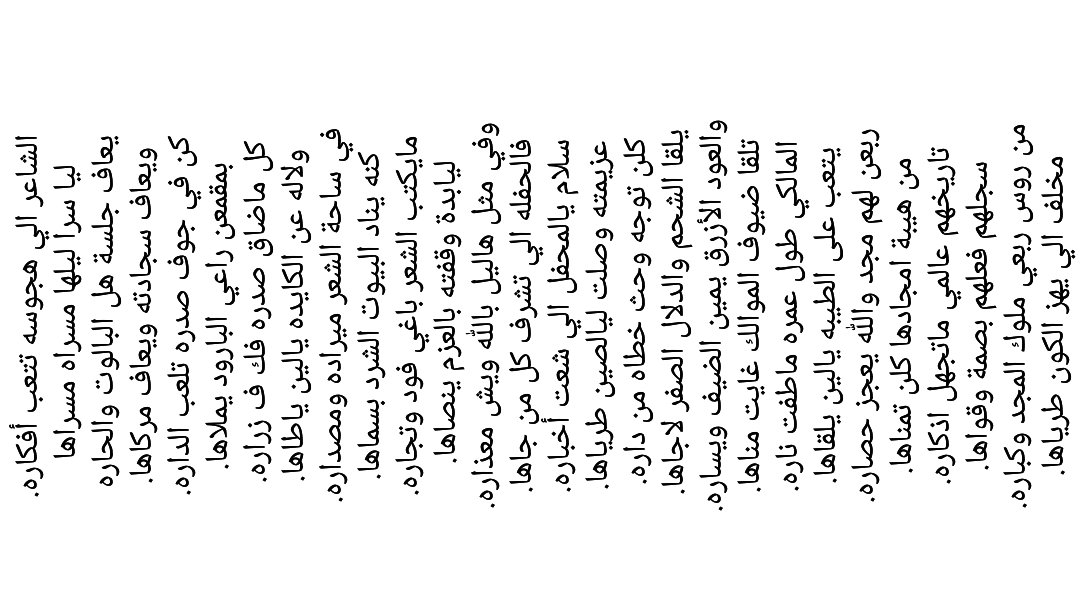 الشاعر الي هجوسه تتعب أفكاره.
ليا سرا ليلها مسراه مسراها
يعاف جلسة هل البالوت والحاره
ويعاف سجادته ويعاف مركاها.
كن في جوف صدره تلعب الداره.
بمقمعن راعي البارود يملاها.
كل ماضاق صدره فك ف زراره.
ولاله عن الكايده يالين ياطاها.
في ساحة الشعر ميراده ومصداره.
كنه يناد البيوت الشرد بسماها.
مايكتب الشعر باغي فود وتجاره.
ليابدة وقفته بالعزم ينصاها.
وفي مثل هاليل بالله ويش معذاره.
فالحفله الي تشرف كل من جاها.
سلام يالمحفل الي شعت أخباره.
عزيمته وصلت ليالصين طرياها.
كلن توجه وحث خطاه من داره.
يلقا الشحم والدلال الصفر لاجاها.
والعود الأزرق يمين الضيف ويساره.
تلقا ضيوف الموالك غايت مناها.
المالكي طول عمره ماطفت ناره.
يتعب على الطيبه يالين يلقاها.
ربعن لهم مجد والله يعجز حصاره.
من هيبة امجادها كلن تمناها.
تاريخهم عالمي ماتجهل اذكاره.
سجلهم فعلهم بصمة وقواها.
من روس ربعي ملوك المجد وكباره.
مخلف الي يهز الكون طرياها.